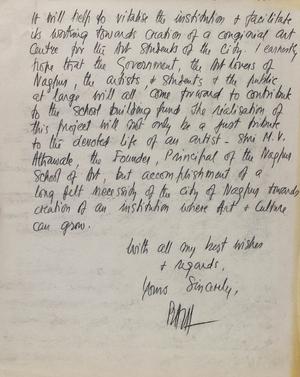 It will help to vitalise the institution & facilitate
its working towards creation of a congenial art
Centre for the Art Students of the City. I earnestly
hope that the Government, the Art lovers of
Nagpur, the artists & students & the public
at large will all come forward to contribute
to the school building fund the realisation of
this project will not only be a just tribute
to the devoted life of an artist - Shri M.V.
Athawale, the Founder, Principal of the Nagpur
School of Art, but accomplishment of a
long felt necessity of the city of Nagpur towards
creation of an institution where Art & Culture
can grow.
With all my best wishes
& regards,
Yours Sincerely,